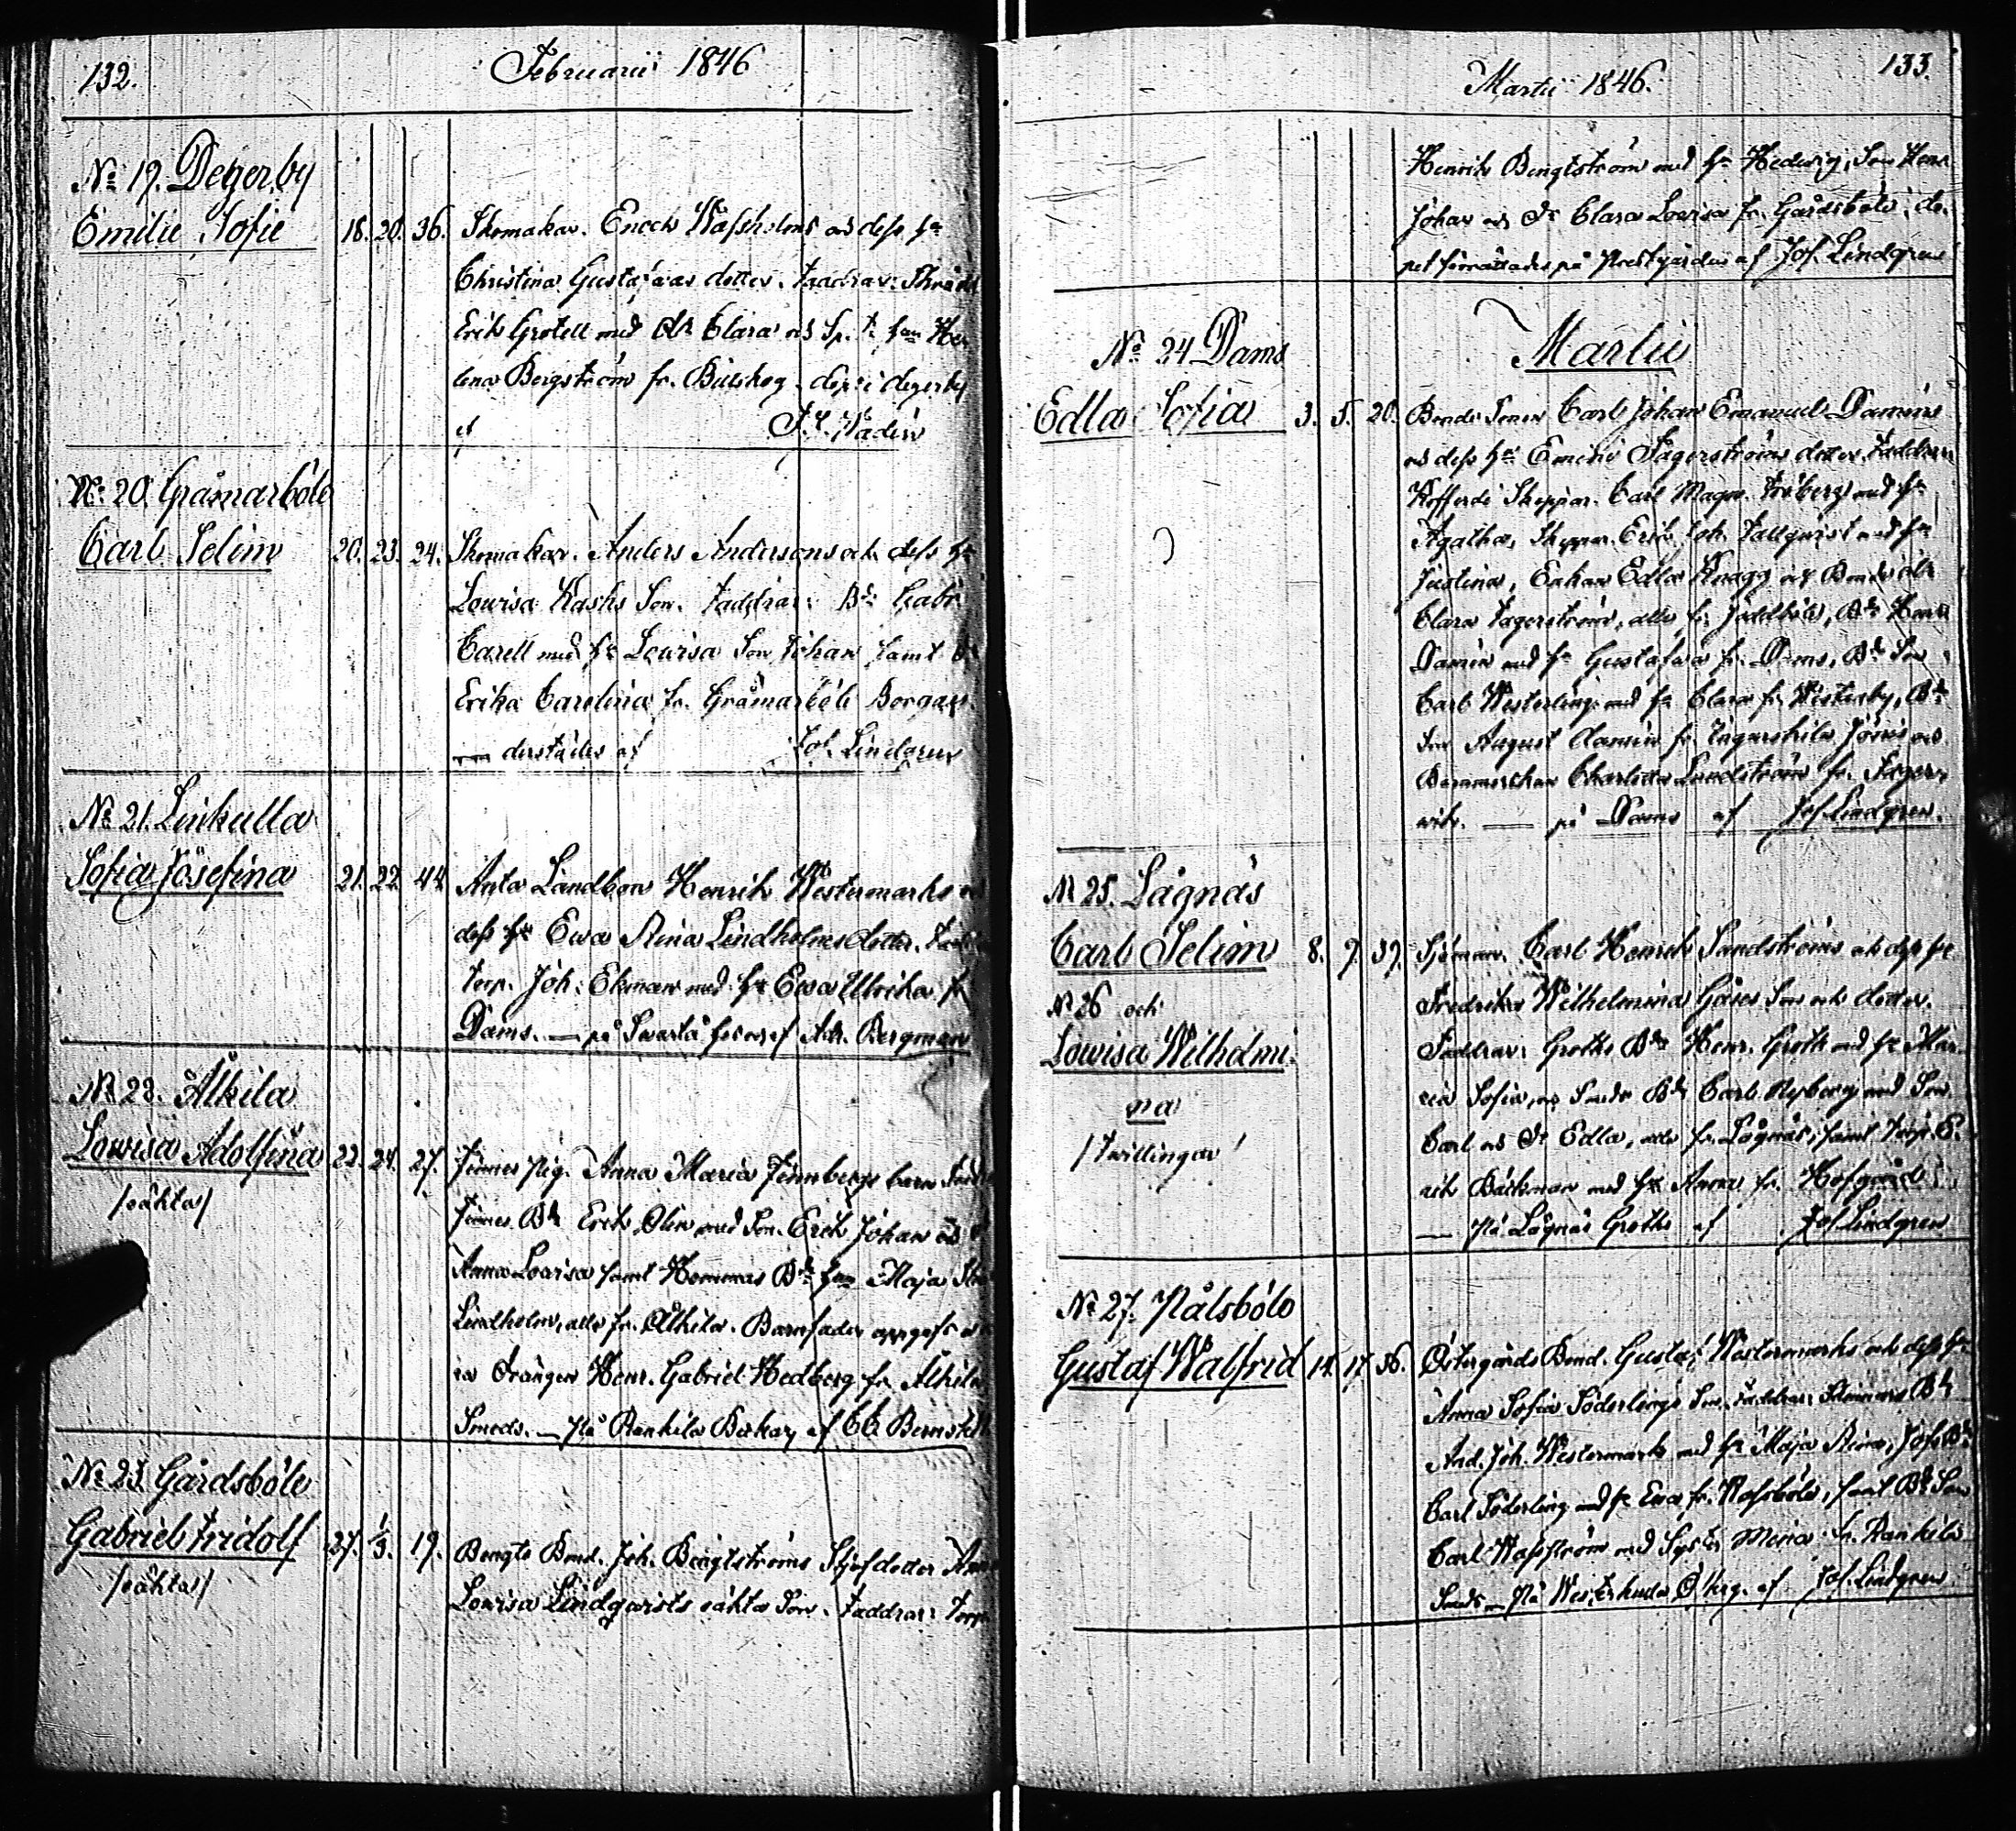 132.
Februarii 1846
No 19. Degerby
Emilie Sofie 18. 20. 36. Skomakar. Enoch Wassholms och dess hu
Christina Gustafvas dotter. Faddrar: Skrädd
Erik Grotell med Clara och
lena Bergström fr. Billskog. döpt i degerby
af F. F. Wadén
No 20. Gråmarböle
Carl Selim 20. 23. 24. Skomakar. Anders Andersons och dess hu
Lowisa Kasks Son. Faddrar: Bd Gabr.
Carell med hu Lowisa Son Johan samt
Erika Carolina fr. Gråmarböle Borgars
— derstädes af Jos. Lindgren
No 21. Linkulla
Sofia Josefina 21. 22. 44. Landbon Henrik Westermarks
dess hu Ewa Stina Lindholms dotter.
torp. Joh. Ekman med hu Ewa Ulrika fr
Dams. — på Svartå af Adr. Bergman
No 23. Ålkila
Lowisa Adolfina 22. 24. 27. Finnes Pig. Anna Maria Finnbergs barn
/oäkta/
Finnes Bd Erik Olin med Son. Erik Johan och
Anna Lowisa samt Hemmas Bd hu Maja
Lindholm, alla fr. Ålkila. Barnfader uppgifs
Drängen Henr. Gabriel Hedberg fr. Ålkila
Smeds. — På Rankila af
No 23. Gårdsböle
Gabriel Fridolf 27. 1/3. 19. Bengts Bond. Joh. Bengtströms Styfdotter
/oäkta/
Lowisa Lindqvists oäkta Son. Faddrar: Torp
133.
Martii 1846.
Henrik Bengtström med hu Hedvig, Son Henr
Johan och Dr Clara Lowisa fr. Gårdsböle; do-
pet förrättades på Prestgården af Jos. Lindgren
Martii
No 24 Dams
Edla Sofia 3. 5. 20. Bonde Sonen Carl Johan Emanuel Damins
och dess hu Emilie Fagerströms dotter. Faddrar
Kofferdi Skeppar. Carl Magn. Friberg med hu
Agatha, Skeppar. Erik Joh. Tallqvist med hu
Justina, Enkan Edla Knagg och Bonde
Clara Fagerström, alla fr. Jödelböle, Bd
Damin med hu Gustafva fr. Dams, Bd Son
Carl Westerling med hu Clara fr. Westerby, Bd
Son August Damin fr. och
Charlotta Lundström fr. Fager-
wik. — på Dams af Jos. Lindgren.
No 25. Lågnäs
Carl Selim 8. 9. 39. Sjöman. Carl Henrik Sandströms och dess hu
No 26 och
Fredrika Wilhelmina Gåses Son och dotter.
Lowisa Wilhelmi-
Faddrar: Groths Bd Henr. Groth med hu Mar-
na
ria Sofia, och Smeds Bd Carl Nyberg med Son
/Twillingar/
Carl och Dr Edla, alla fr. Lågnäs, samt torp. E-
rik Bäckman med hu Anna fr. Hofgård
— På Lågnäs Groths af Jos. Lindgren
No 27. Pålsböle
Gustaf Walfrid 14. 17. 36. Östergårds Bond. Gustaf Westermarks och dess hu
Anna Sofia Söderlings Son. Faddrar: Bd
And. Joh. Westermark med hu Maja Stina, Jofs Bd
Carl Söderling med hu Ewa fr. Rafsböle, samt Bd Son
Carl Wasström med Syster Mina fr. Rankila
Smeds — På Westerkulla af Jos. Lindgren